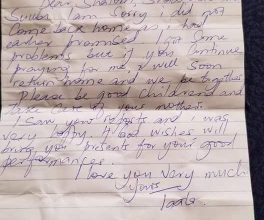 Dear Sharon,
I am sorry did not
Come back home as I had
earlier promised. I got some
problems but if you continue
praying for me, I will soon
return home and we be together
Please be good children and
take care of your mother.
I saw your reports and I was
very happy. A God wishes will
bring you presents for your good
performances.
I love you very much
Yours